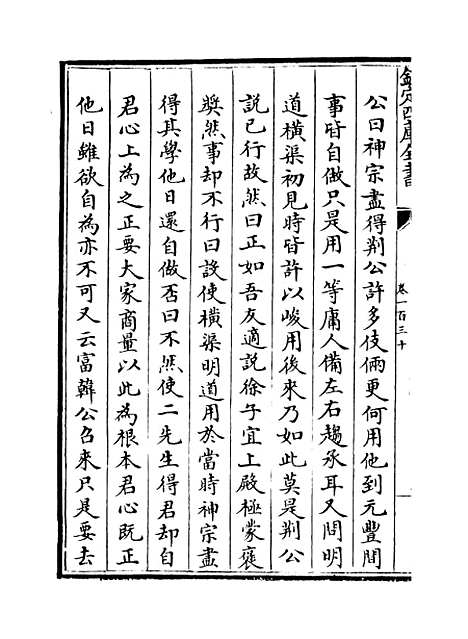 欽定四庫全書
卷一百三十
公曰神宗盡得荆公許多伎倆更何用他到元豐間
事皆自做只是用一等庸人備左右趨承耳又問明
道横渠初見時皆許以峻用後來乃如此莫是荆公
說已行故然曰正如吾友適說徐子宜上殿極蒙褒
奬然事却不行曰設使横渠明道用於當時神宗盡
得其學他日還自做否曰不然使二先生得君却自
君心上為之正要大家商量以此為根本君心既正
他日雖欲自為亦不可又云富韓公召來只是要去